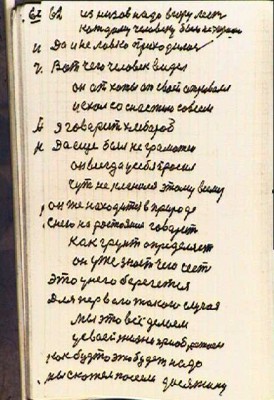 62 62 из низов надо вверх лесть
каждому человеку было
и Да и неловко приходилось
Вот чего человек видел
он от хоты от своей оторвался
и с хлостью совсем
я говорит хлебороб
и Да еще был не грамотен
он всегда у себя просил
чуть не кланялся этому всему
он же находится в природе
с него на расстояния говорит
как грунт определяет
он уже знает чего сеет
это у него бережется
для первого такого случая
мы это всё делаем
у своей жизни приобретаем
как будто это будет надо
мы скажем посеем десятину